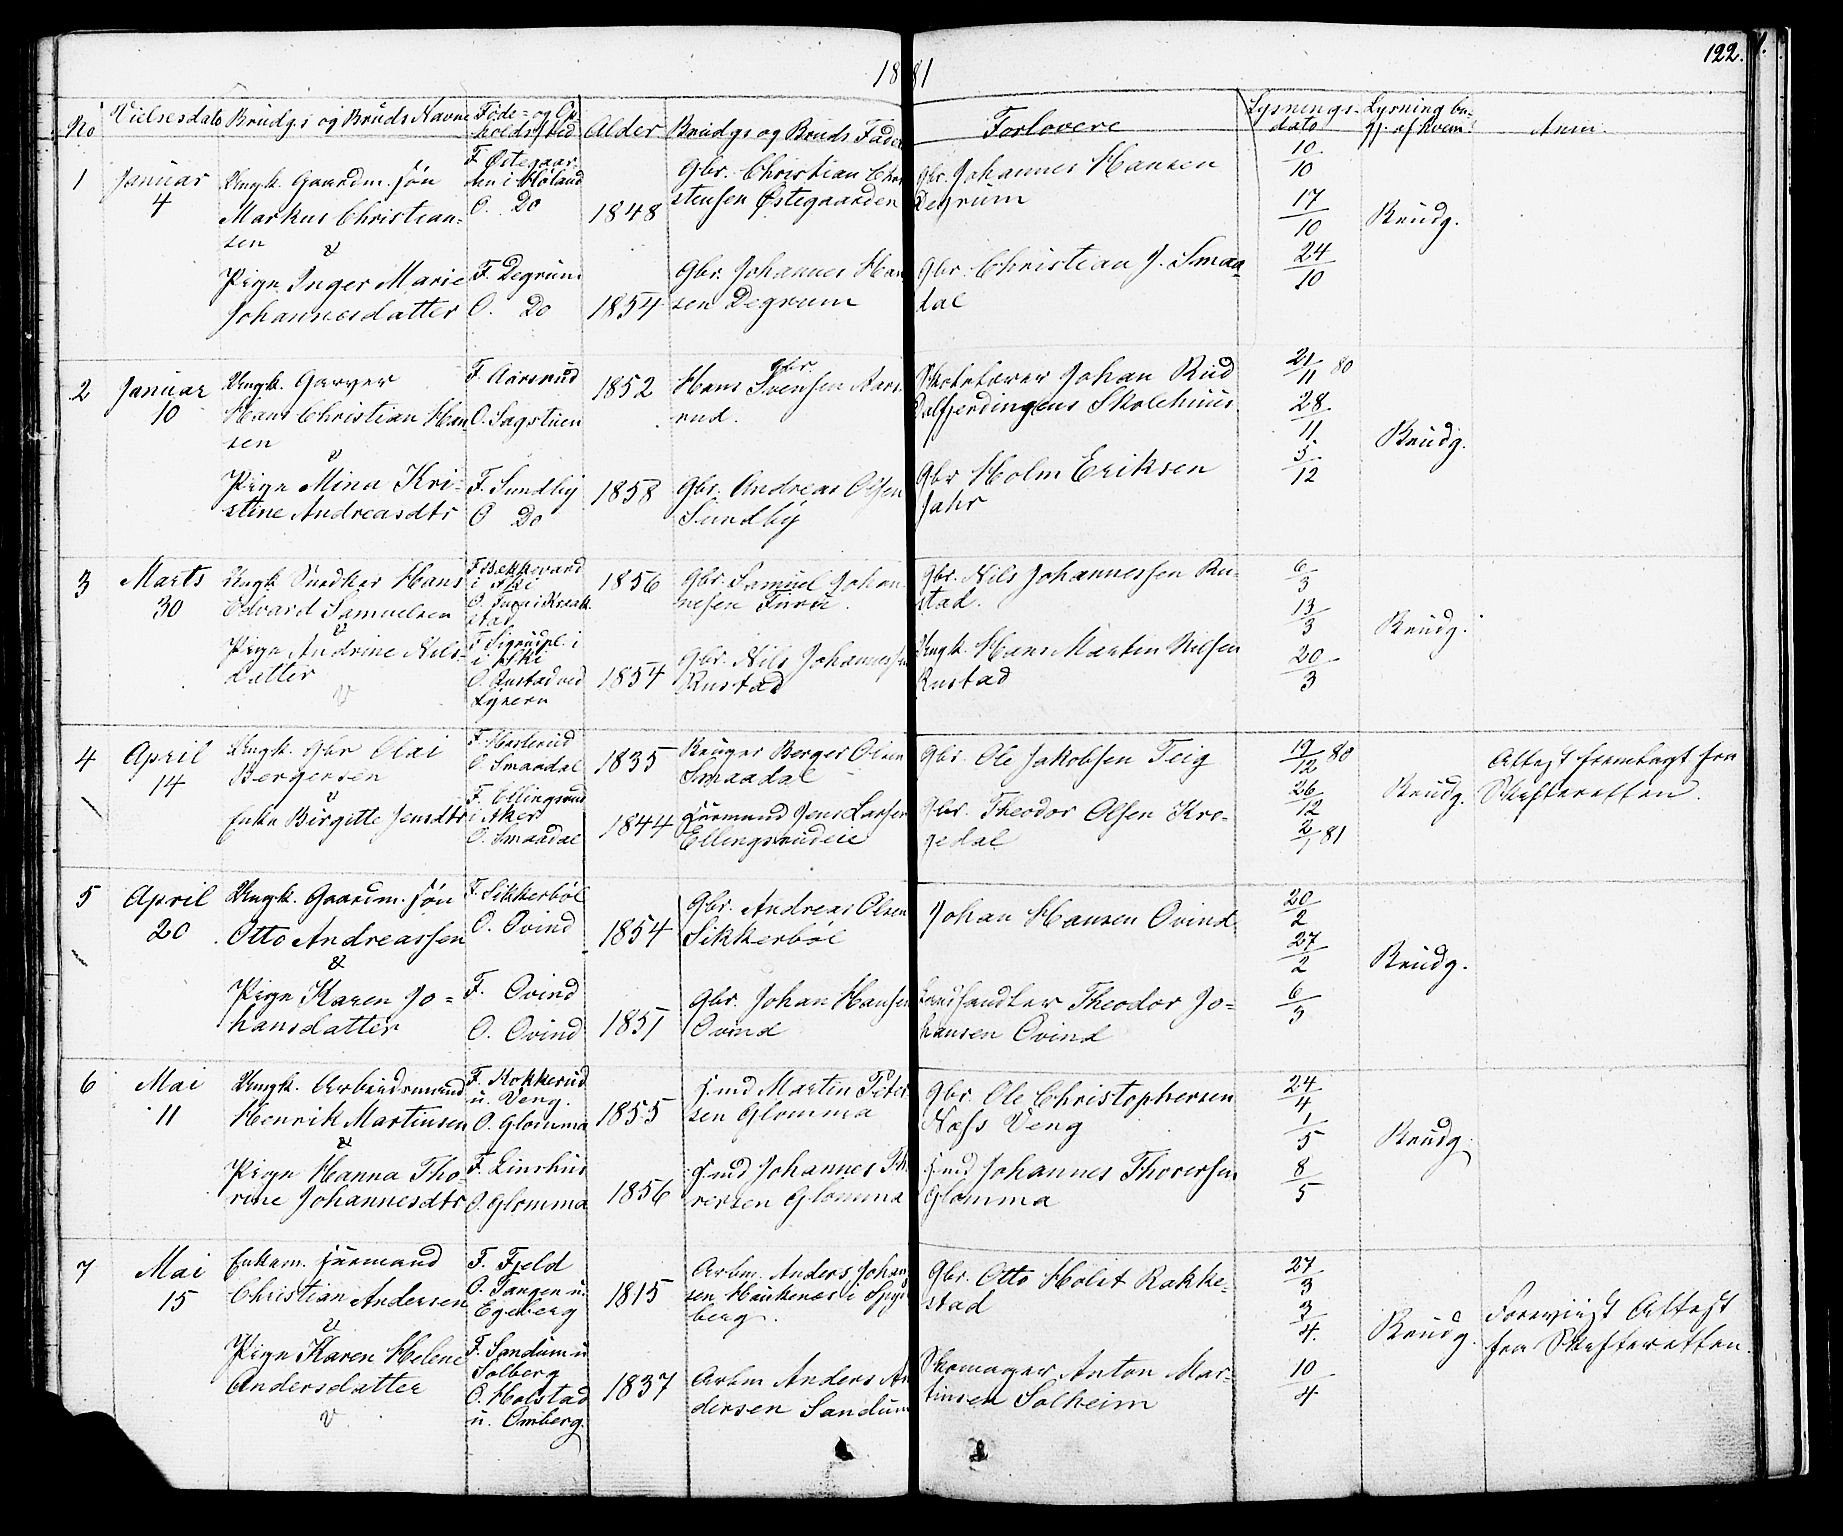 122.
1881
No Vielsesdato Brudgs og Bruds Navne Føde- og Op-
holdssted Alder Brudgs og Bruds Fader Forlovere Lysnings-
dato Lysning be-
gj. af hvem. Anm.
1 Januar
4
Ungk. Gaardm. søn
Markus Christian-
sen
&
Pige Inger Marie
Johannesdatter
F. Østegaar-
den i Høland
O. Do
F. Degrum
O. Do
1848
1854
Gbr. Christian Chri
stensen Østegaarden
Gbr. Johannes Han
sen Degrum
Gbr. Johannes Hansen
Degrum
Gbr. Christian J. Smaa-
dal
10/10
17/10
24/10
Brudg.
2 Januar
10
Ungk. Garver
Hans Christian Han
sen
&
Pige Mina Kri-
stine Andreasdtr
F. Aarsrud
O. Sagstuen
F. Sundby
O Do
1852
1858
Gbr
Hans Svensen Aars
rud.
Gbr. Andreas Olsen
Sundby
Skolelærer Johan Rud
Dalfjerdingens Skolehuus.
Gbr Holm Eriksen
Jahr
21/11 80
28/11
5/12
Brudg.
3 Marts
30
Ungk. Snedker Hans
Edvard Samuelsen
&
Pige Andrine Nils-
datter
F. Bækkevard
i Ski
O. Furu i Kraak
stad
F. Sigrudpl. i
i Ski
O. Rustad ved
Lyseren
1856
1854
Gbr. Samuel Johan
nesen Furu.
Gbr. Nils Johannessen
Rustad
Gbr. Nils Johannessen Ru-
stad.
Ungk. Hans Martin Nilsen
Rustad
6/3
13/3
20/3
Brudg.
4 April
14
Ungk. Gbr Olai
Bergersen
&
Enke Birgitte Jensdtr
F. Hasterud
O Smaadal
F. Ellingsrud
i Aker
O. Smaadal
1835
1844
Bruger Berger Olsen
Smaadal
Huusmand Jens Larsen
Ellingsrudeie
Gbr. Ole Jakobsen Teig
Gbr. Theodor Olsen Kro-
gedal
19/12 80
26/12
2/1 81
Brudg.
Attest frembragt fra
Skifteretten.
5 April
20
Ungk. Gaardm. søn
Otto Andreassen
&
Pige Karen Jo-
hansdatter
F. Sikkerbøl
O. Ovind
F. Ovind
O. Ovind
1854
1851
Gbr. Andreas Olsen
Sikkerbøl
Gbr. Johan Hansen
Ovind
Johan Hansen Ovind
Landhandler Theodor Jo-
hansen Ovind
20/2
27/2
6/3
Brudg.
6 Mai
11
Ungk. Arbeidsmand
Henrik Martinsen
&
Pige Hanna Tho-
rine Johannesdtr
F. Kokkerud
u. Veng.
O. Glomma
F. Linshus
O. Glomma
1855
1856
Hmd Martin Peter
sen Glomma
Hmd Johannes Th
rersen Glomma
Gbr. Ole Christophersen
Næss Veng
Hmd Johannes Thorersen
Glomma
24/4
1/5
8/5
Brudg.
7 Mai
15
Enkem. Huusmand
Christian Andersen
&
Pige Karen Helene
Andersdatter
F. Fjeld
O. Tangen u.
Egeberg
F. Sandum u
Solberg
O. Holstad
u. Omberg.
1815
1837
Arbm. Anders Johan
sen Haukenæs i Spyd
berg.
Arbm Anders An
dersen Sandum
Gbr. Otto Holst Rakke-
stad
Skomager Anton Mar-
tinsen Solheim
27/3
3/4.
10/4
Brudg.
Foreviist Attest
fra Skifteretten.